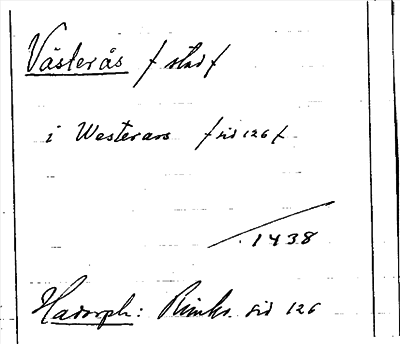 Västerås / stad /
i Westerars / sid 126 /.
1438
Hadorph: Rimkr. sid 126